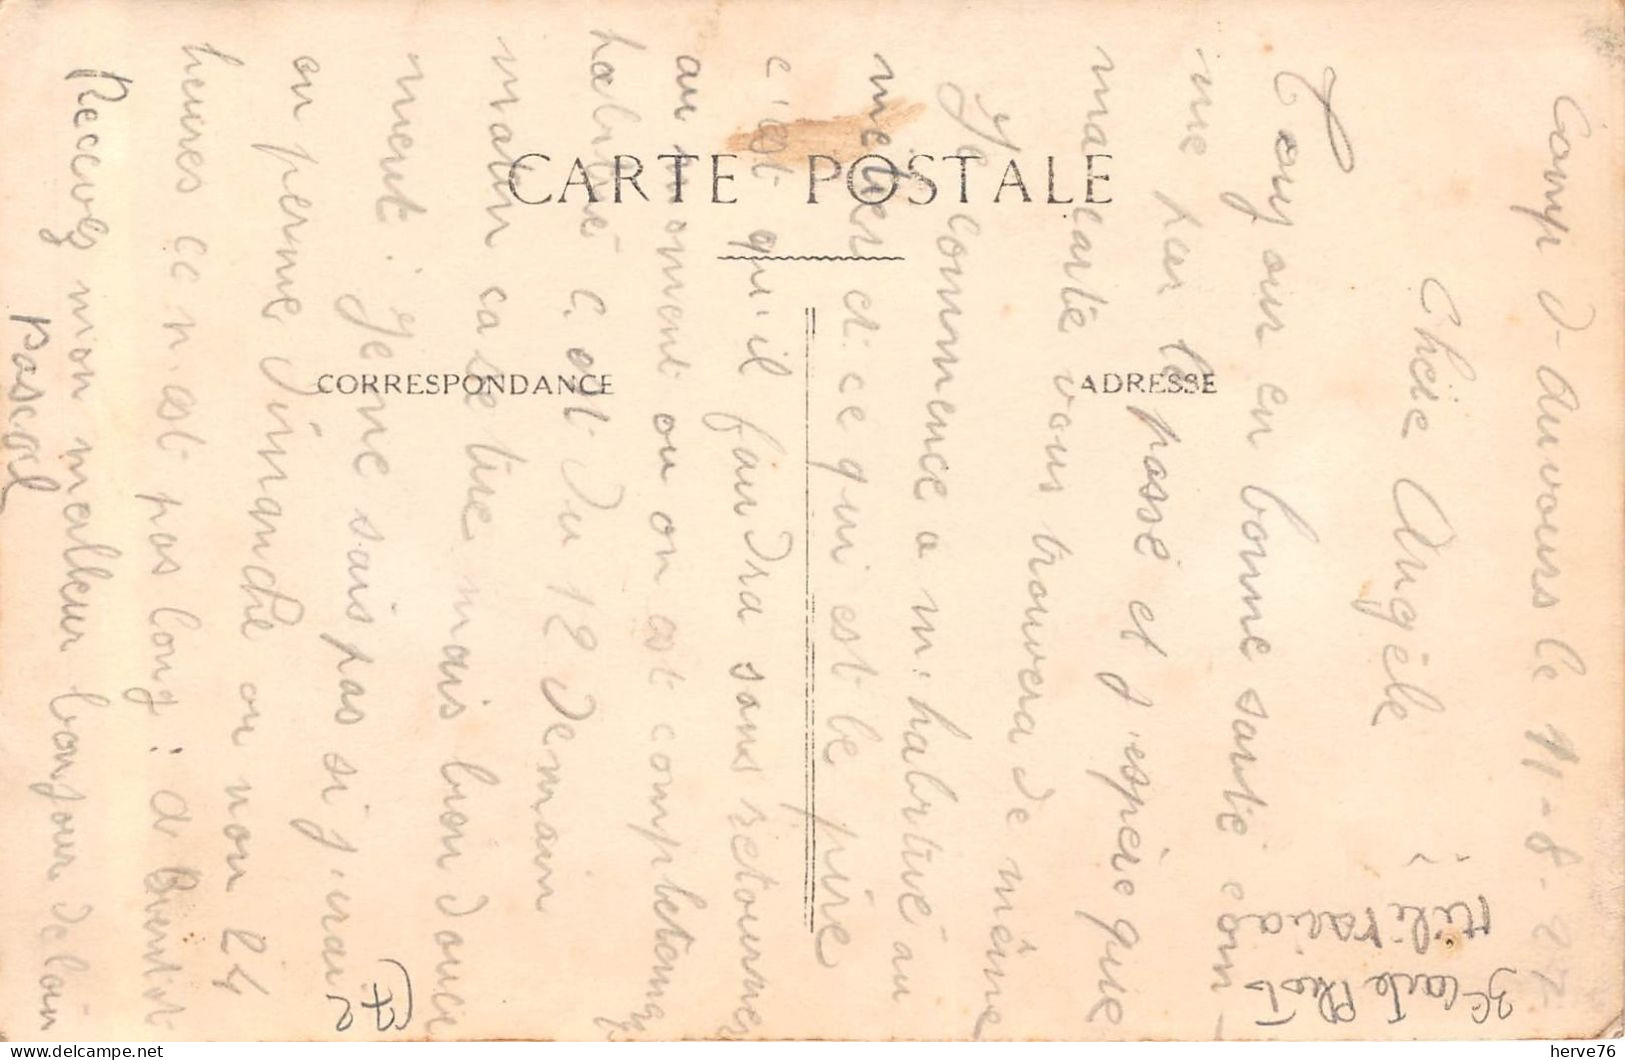 Camp d'auvours le 11-8-27
Chère Angèle
Toujour en bonne santé com-
me par le passé et j'espère que
ma carte vous trouvera de même
Je commence a m'habitué au
métier et ce qui est le pire
c'est qu'il faudra sans retourner
au moment ou on est completement
habitué c'est du 12 demain
matin ca se tire mais bien douce
ment : Je ne sais pas si j'irai
en perme Dimanche ou non 24
heures ce n'est pas long : a Bientot
Recevez mon meilleur bonjour de loin
Pascal
CARTE POSTALE
CORRESPONDANCE
ADRESSE
3€ carte Photo
Militaria
herve76